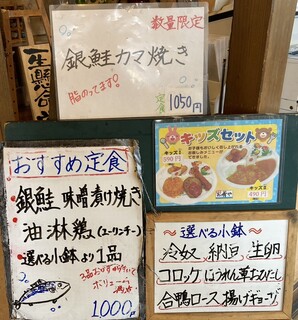 数量限定
銀鮭カマ焼き
脂のってます!
定食 1050円
おすすめ定食
銀鮭 味噌漬け焼き
油淋鶏(ユーリンチー)
選べる小鉢より1品
1000円
キッズセット
キッズ1
490円
490円
~選べる小鉢~
冷奴 納豆 生卵
コロッケ ほうれん草おひたし
合鴨ロース 揚げギョーザ